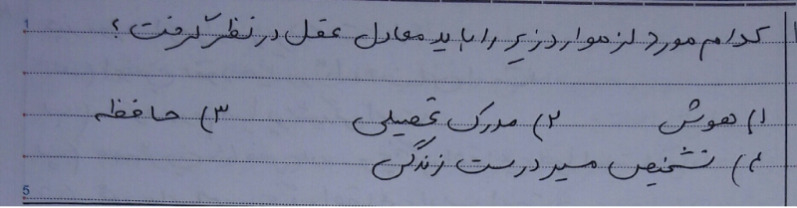 کدام مورد از موارد زیر را باید معادل عقل در نظر گرفت؟
۱) هوش ۲) مدرک تحصیلی ۳) حافظه
۴) تشخیص مسیر درست زندگی